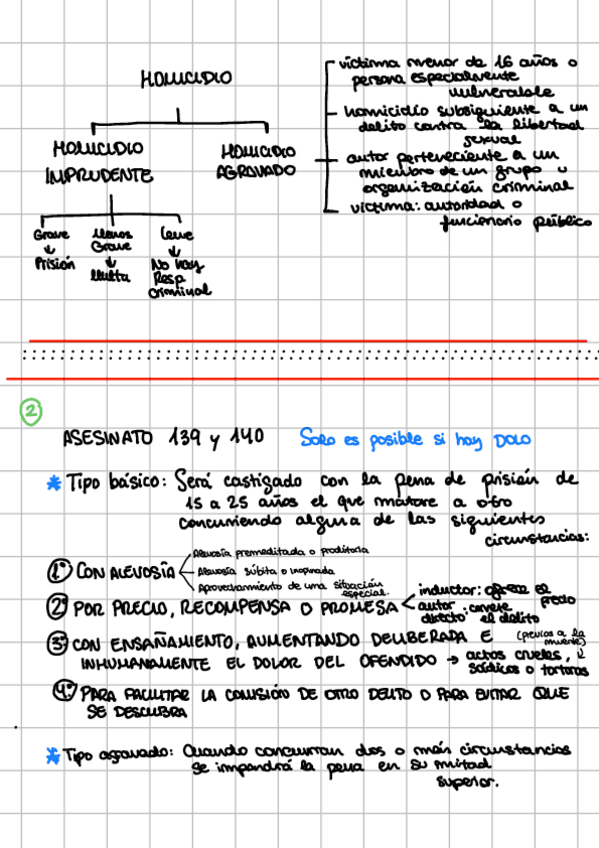 HOMICIDIO
HOMICIDIO
IMPRUDENTE
Grave
↓
Prisión
Menos
Grave
↓
Multa
Leve
↓
No hay
Resp
Criminal
HOMICIDIO
AGRAVADO
víctima menor de 16 años o
persona especialmente
vulnerable
homicidio subsiguiente a un
delito contra la libertad
sexual
autor perteneciente a un
miembro de un grupo u
organización criminal
víctima: autoridad o
funcionario público
2
ASESINATO 139 y 140 Solo es posible si hay DOLO
* Tipo básico: Será castigado con la pena de prisión de
15 a 25 años el que matare a otro
concurriendo alguna de las siguientes
circunstancias:
1º CON ALEVOSÍA
Alevosía premeditada o proditoria
Alevosía súbita o inopinada
Aprovechamiento de una situación
especial.
2º POR PRECIO, RECOMPENSA O PROMESA
inductor: ofrece el
precio
autor : comete
directo el delito
3º CON ENSAÑAMIENTO, AUMENTANDO DELIBERADA E (previos a la
muerte)
INHUMANAMENTE EL DOLOR DEL OFENDIDO → actos crueles,
sádicos o torturas
4º PARA FACILITAR LA COMISIÓN DE OTRO DELITO O PARA EVITAR QUE
SE DESCUBRA
* Tipo agravado: Cuando concurran dos o más circunstancias
se impondrá la pena en su mitad
superior.